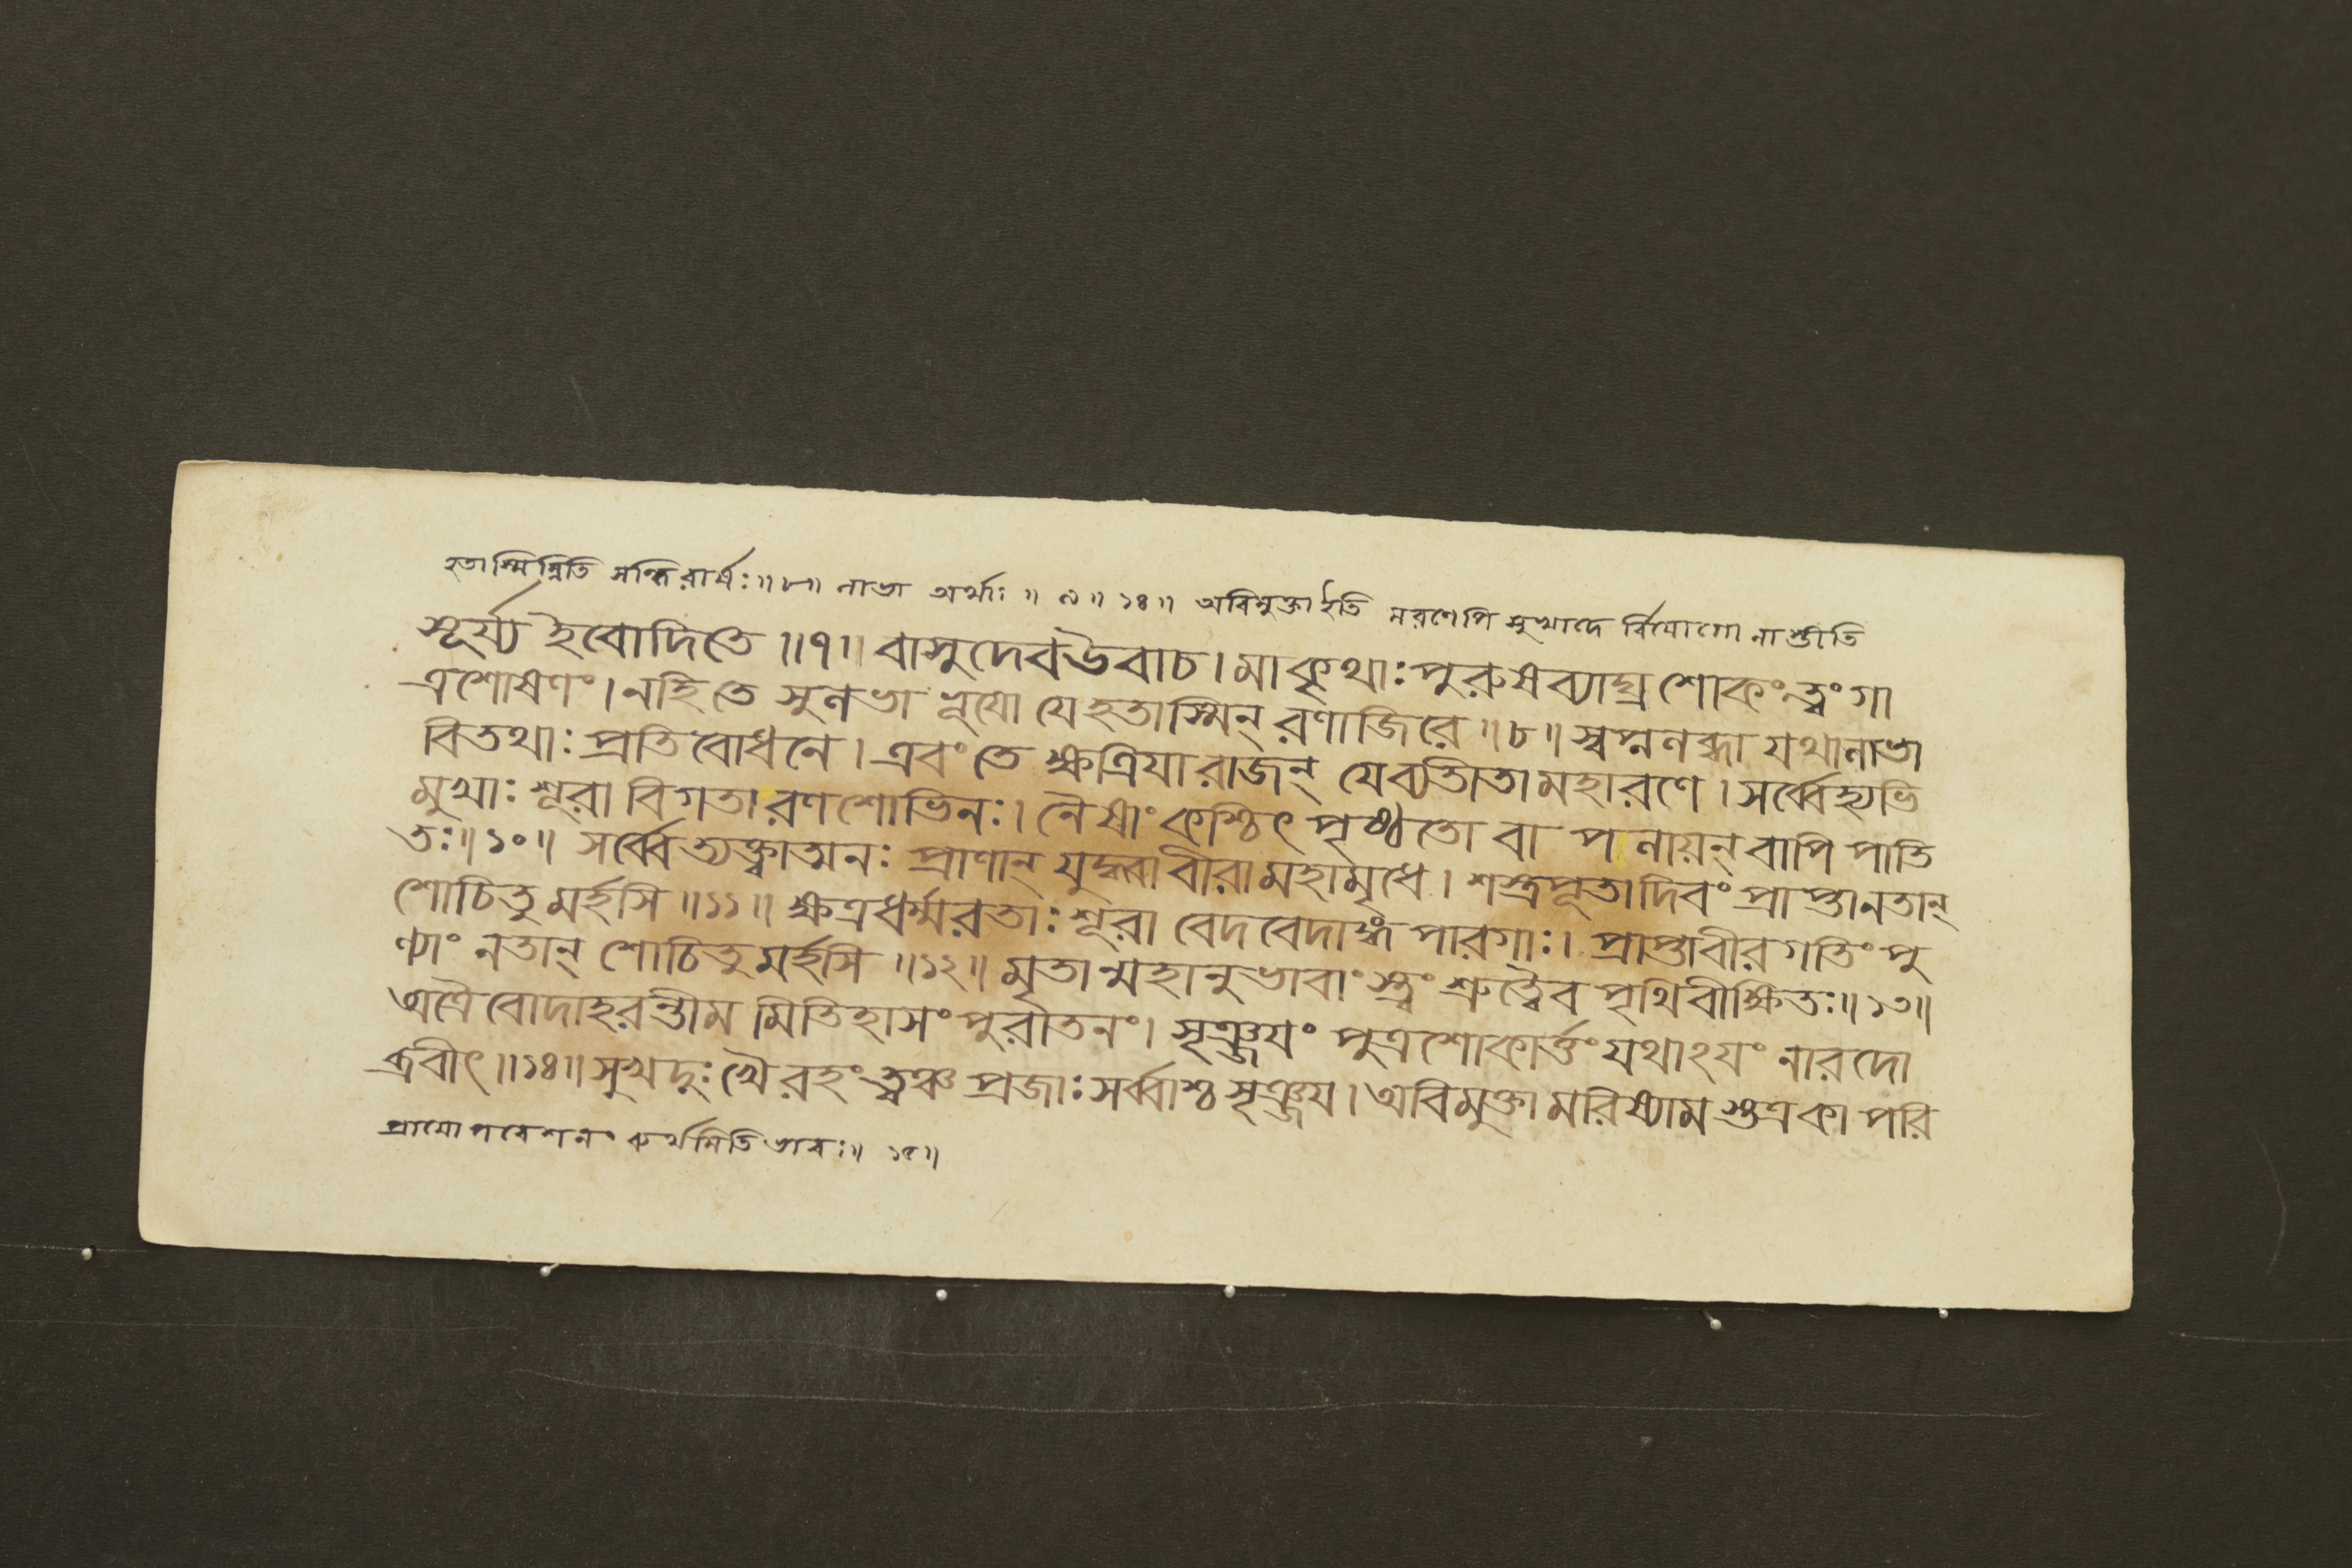 হতাস্মিন্নিতি সন্ধিরার্ষঃ॥৮॥ লাভা অর্থাঃ ॥ ৯॥ ১৪॥ অবিমুক্তাইতি মরণেপি সুখাদে র্বিযোগো নাস্তীতি
সূর্য্য ইবোদিতে ॥৭॥ বাসুদেবউবাচ। মাকৃথাঃ পুরুষব্যাঘ্র শোকং ত্বং গা
ত্রশোষণং। নহি তে সুলভা ভূযো যেহতাস্মিন্ রণাজিরে॥৮॥ স্বপ্নলব্ধা যথালাভা
বিতথাঃ প্রতিবোধনে। এবং তে ক্ষত্রিযা রাজন্ যেব্যতীতা মহারণে। সর্ব্বেহ্যভি
মুখাঃ শূরা বিগতা রণশোভিনঃ। নৈষাং কশ্চিৎ পৃষ্ঠতো বা পলায়ন্ বাপি পাতি
তঃ॥১০॥ সর্ব্বেত্যক্ত্বাত্মনঃ প্রাণান্ যুদ্ধ্বা বীরামহামৃধে। শস্ত্রপূতাদিবং প্রাপ্তানতান্
শোচিতুমর্হসি॥১১॥ ক্ষত্রধর্ম্মরতাঃ শূরা বেদবেদাঙ্গ পারগাঃ। প্রাপ্তাবীরগতিং পু
ণ্যাং নতান্ শোচিতুমর্হসি॥১২॥ মৃতান্মহানুভাবাংস্ত্বং শ্রুত্বৈব পৃথিবীক্ষিতঃ॥১৩॥
অত্রৈবোদাহরন্তীমমিতিহাসং পুরাতনং। সৃঞ্জযং পুত্রশোকার্ত্তং যথাঽযং নারদো
ব্রবীৎ॥১৪॥ সুখদুঃখৈরহং ত্বঞ্চ প্রজাঃ সর্ব্বাশ্চ সৃঞ্জয। অবিমুক্তা মরিষ্যামস্তত্রকা পরি
প্রাযোপবেশনং ব্যর্থমিতিভাবঃ॥ ১৫॥